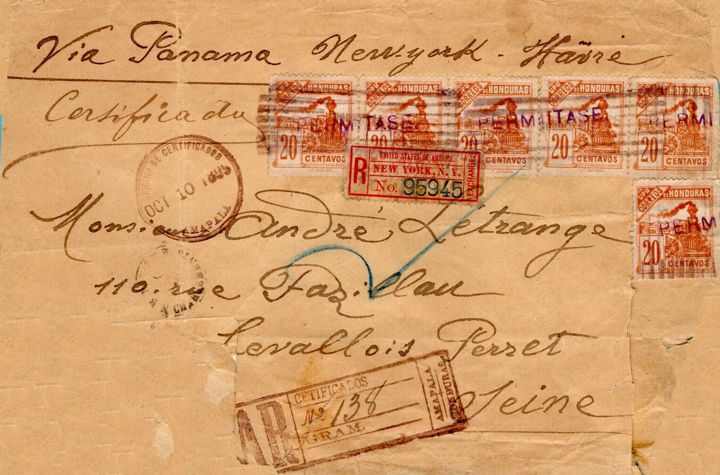 Via Panama New-york - Hâvre
Certificado
CORREOS DE HONDURAS
20
CENTAVOS
CORREOS DE HONDURAS
20
CENTAVOS
CORREOS DE HONDURAS
20
CENTAVOS
CORREOS DE HONDURAS
20
CENTAVOS
CORREOS DE HONDURAS
20
CENTAVOS
PERMITASE PERMITASE PERMI
R
UNITED STATES OF AMERICA.
NEW YORK, N.Y.
No. 95945
EXCHANGE
OFICINA DE CERTIFICADOS
OCT 10
AMAPALA
CORREOS DE HONDURAS
20
CENTAVOS
PERM
Monsieur André Létrange
110. rue Fazillau
Levallois Perret
Seine
AR
CETIFICADOS
No 138
GRAM.
AMAPALA
HONDURAS